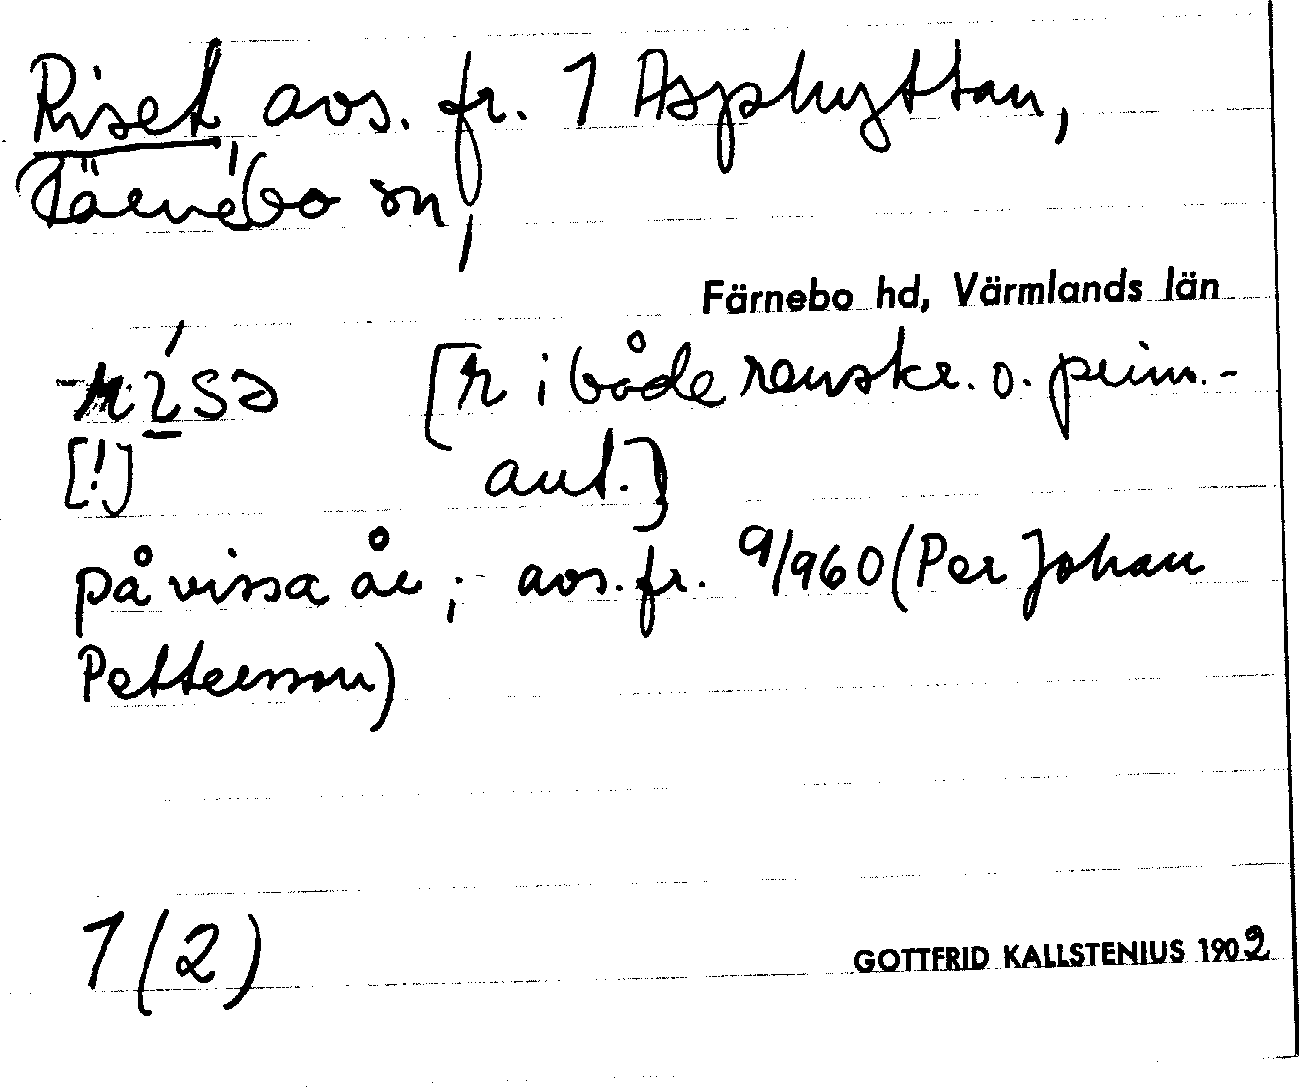 Riset, avs. fr. 1 Asphyttan,
Färnebo sn,
Färnebo hd, Värmlands län
-rɩ́sə [r i både renskr. o. prim.-
[!] ant.]
på vissa år; avs. fr. 9/960 (Per Johan
Petterson)
1 (2)
GOTTFRID KALLSTENIUS 1902